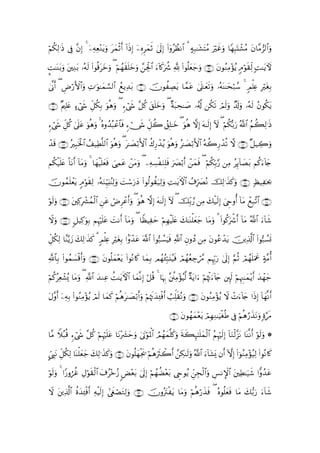 وَٱلرُّمَّانَ مُشْتَبِهًا وَغَيْرَ مُتَشَٰبِهٍ ۗ ٱنظُرُوٓا۟ إِلَىٰ ثَمَرِهِۦٓ إِذَآ أَثْمَرَ وَيَنْعِهِۦٓ ۚ إِنَّ فِى ذَٰلِكُمْ
لَـَٔايَٰتٍ لِّقَوْمٍ يُؤْمِنُونَ وَجَعَلُوا۟ لِلَّهِ شُرَكَآءَ ٱلْجِنَّ وَخَلَقَهُمْ ۖ وَخَرَقُوا۟ لَهُۥ بَنِينَ وَبَنَٰتٍۭ
بِغَيْرِ عِلْمٍ ۚ سُبْحَٰنَهُۥ وَتَعَٰلَىٰ عَمَّا يَصِفُونَ بَدِيعُ ٱلسَّمَٰوَٰتِ وَٱلْأَرْضِ ۖ أَنَّىٰ
يَكُونُ لَهُۥ وَلَدٌ وَلَمْ تَكُن لَّهُۥ صَٰحِبَةٌ ۖ وَخَلَقَ كُلَّ شَىْءٍ ۖ وَهُوَ بِكُلِّ شَىْءٍ عَلِيمٌ
ذَٰلِكُمُ ٱللَّهُ رَبُّكُمْ ۖ لَآ إِلَٰهَ إِلَّا هُوَ ۖ خَٰلِقُ كُلِّ شَىْءٍ فَٱعْبُدُوهُ ۚ وَهُوَ عَلَىٰ كُلِّ شَىْءٍ
وَكِيلٌ لَّا تُدْرِكُهُ ٱلْأَبْصَٰرُ وَهُوَ يُدْرِكُ ٱلْأَبْصَٰرَ ۖ وَهُوَ ٱللَّطِيفُ ٱلْخَبِيرُ قَدْ
جَآءَكُم بَصَآئِرُ مِن رَّبِّكُمْ ۖ فَمَنْ أَبْصَرَ فَلِنَفْسِهِۦ ۖ وَمَنْ عَمِىَ فَعَلَيْهَا ۚ وَمَآ أَنَا۠ عَلَيْكُم
بِحَفِيظٍ وَكَذَٰلِكَ نُصَرِّفُ ٱلْءَايَٰتِ وَلِيَقُولُوا۟ دَرَسْتَ وَلِنُبَيِّنَهُۥ لِقَوْمٍ يَعْلَمُونَ
ٱتَّبِعْ مَآ أُوحِىَ إِلَيْكَ مِن رَّبِّكَ ۖ لَآ إِلَٰهَ إِلَّا هُوَ ۖ وَأَعْرِضْ عَنِ ٱلْمُشْرِكِينَ وَلَوْ
شَآءَ ٱللَّهُ مَآ أَشْرَكُوا۟ ۗ وَمَا جَعَلْنَٰكَ عَلَيْهِمْ حَفِيظًا ۖ وَمَآ أَنتَ عَلَيْهِم بِوَكِيلٍ وَلَا
تَسُبُّوا۟ ٱلَّذِينَ يَدْعُونَ مِن دُونِ ٱللَّهِ فَيَسُبُّوا۟ ٱللَّهَ عَدْوًۢا بِغَيْرِ عِلْمٍ ۗ كَذَٰلِكَ زَيَّنَّا لِكُلِّ
أُمَّةٍ عَمَلَهُمْ ثُمَّ إِلَىٰ رَبِّهِم مَّرْجِعُهُمْ فَيُنَبِّئُهُم بِمَا كَانُوا۟ يَعْمَلُونَ وَأَقْسَمُوا۟ بِٱللَّهِ
جَهْدَ أَيْمَٰنِهِمْ لَئِن جَآءَتْهُمْ ءَايَةٌ لَّيُؤْمِنُنَّ بِهَا ۚ قُلْ إِنَّمَا ٱلْءَايَٰتُ عِندَ ٱللَّهِ ۖ وَمَا يُشْعِرُكُمْ
أَنَّهَآ إِذَا جَآءَتْ لَا يُؤْمِنُونَ وَنُقَلِّبُ أَفْـِٔدَتَهُمْ وَأَبْصَٰرَهُمْ كَمَا لَمْ يُؤْمِنُوا۟ بِهِۦٓ أَوَّلَ
مَرَّةٍ وَنَذَرُهُمْ فِى طُغْيَٰنِهِمْ يَعْمَهُونَ
۞ وَلَوْ أَنَّنَا نَزَّلْنَآ إِلَيْهِمُ ٱلْمَلَٰٓئِكَةَ وَكَلَّمَهُمُ ٱلْمَوْتَىٰ وَحَشَرْنَا عَلَيْهِمْ كُلَّ شَىْءٍ قُبُلًا مَّا
كَانُوا۟ لِيُؤْمِنُوٓا۟ إِلَّآ أَن يَشَآءَ ٱللَّهُ وَلَٰكِنَّ أَكْثَرَهُمْ يَجْهَلُونَ وَكَذَٰلِكَ جَعَلْنَا لِكُلِّ نَبِىٍّ
عَدُوًّا شَيَٰطِينَ ٱلْإِنسِ وَٱلْجِنِّ يُوحِى بَعْضُهُمْ إِلَىٰ بَعْضٍ زُخْرُفَ ٱلْقَوْلِ غُرُورًا ۚ وَلَوْ
شَآءَ رَبُّكَ مَا فَعَلُوهُ ۖ فَذَرْهُمْ وَمَا يَفْتَرُونَ وَلِتَصْغَىٰٓ إِلَيْهِ أَفْـِٔدَةُ ٱلَّذِينَ لَا